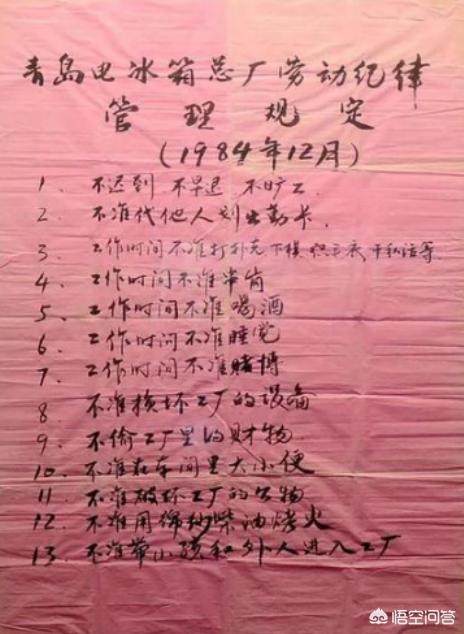 青岛电冰箱总厂劳动纪律
管理规定
(1984年12月)
1. 不迟到 不早退 不旷工.
2. 不准代他人划出勤卡.
3. 工作时间不准打扑克 下棋 织毛衣 干私活等.
4. 工作时间不准串岗
5. 工作时间不准喝酒
6. 工作时间不准睡觉
7. 工作时间不准赌博
8. 不准损坏工厂的设备
9. 不偷工厂里的财物
10. 不准在车间里大小便
11. 不准破坏工厂的公物
12. 不准用棉纱柴油烤火
13. 不准带小孩和外人进入工厂
悟空问答